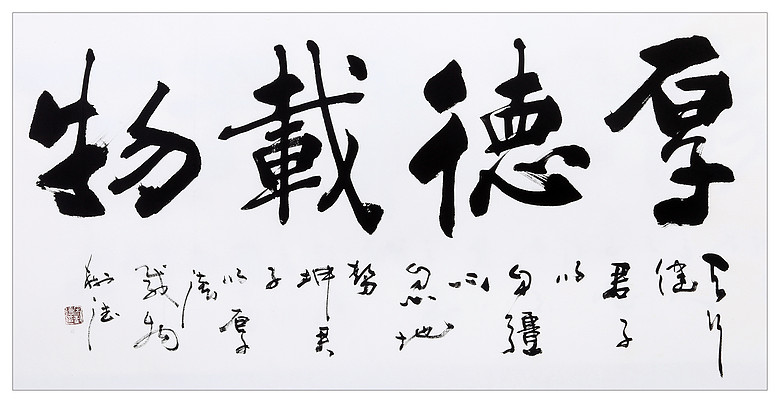 厚德載物
天行
健
君子
以
自彊
不
息地
勢
坤君
子
以厚
德
載物